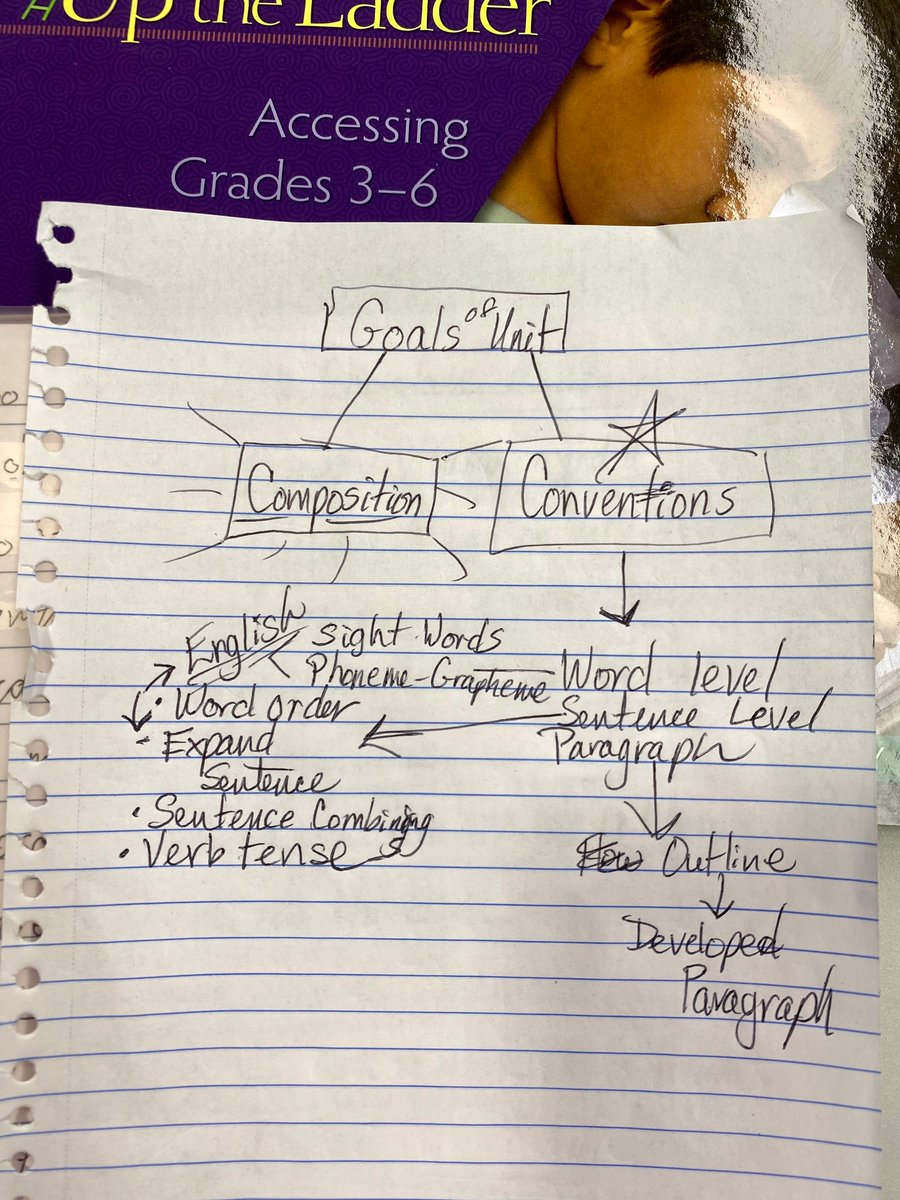 Up the Ladder
Accessing
Grades 3–6
Goals of Unit
Composition
Conventions
English
Sight Words
Phoneme-Grapheme
• Word order
• Expand
Sentence
• Sentence Combining
• Verb tenses
Word level
Sentence Level
Paragraph
Outline
Developed
Paragraph